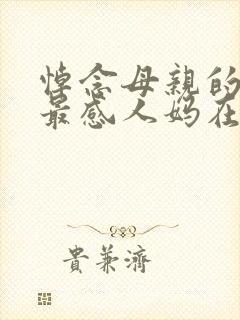 悼念母親的
最感人媽在
貴兼濟